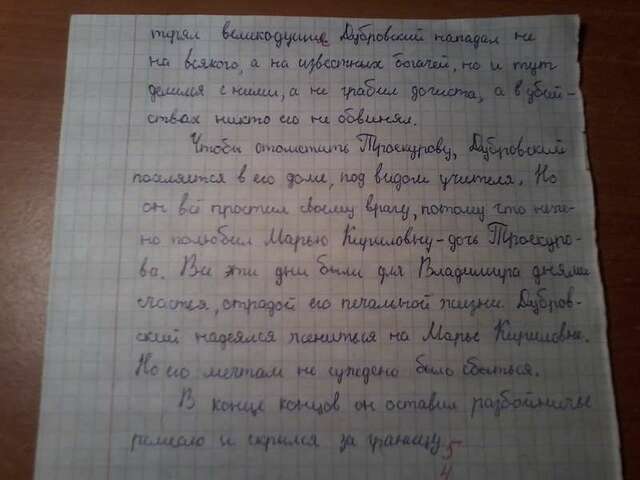 терял великодушие Дубровский нападал не
на всякого, а на известных богачей, но и тут
делился с ними, а не грабил дочиста, а в убий-
ствах никто его не обвинял.
Чтобы отомстить Троекурову, Дубровский
поселяется в его доме, под видом учителя. Но
он всё простил своему врагу, потому что неж-
но полюбил Марью Кириловну - дочь Троекуро-
ва. Все эти дни были для Владимира днями
счастья, отрадой его печальной жизни. Дубров-
ский надеялся жениться на Марье Кириловне.
Но его мечтам не суждено было сбыться.
В конце концов он оставил разбойничье
ремесло и скрылся за границу
5
4